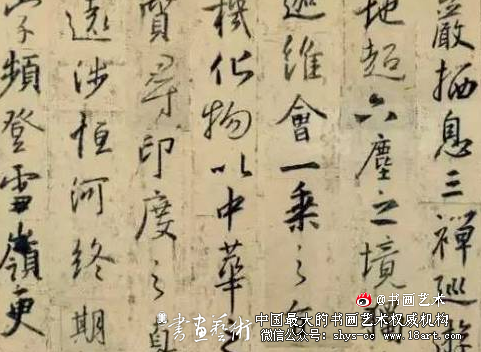 嚴栖息三禪巡遊
地超六塵之境
迦維會一乘之旨
機化物以中華之
質尋印度之真
遠涉恒河終期
字頻登雪嶺更
@书画艺术
書畫藝術
中国最大的书画艺术权威机构
微信公众号：shys-cc www.18art.com